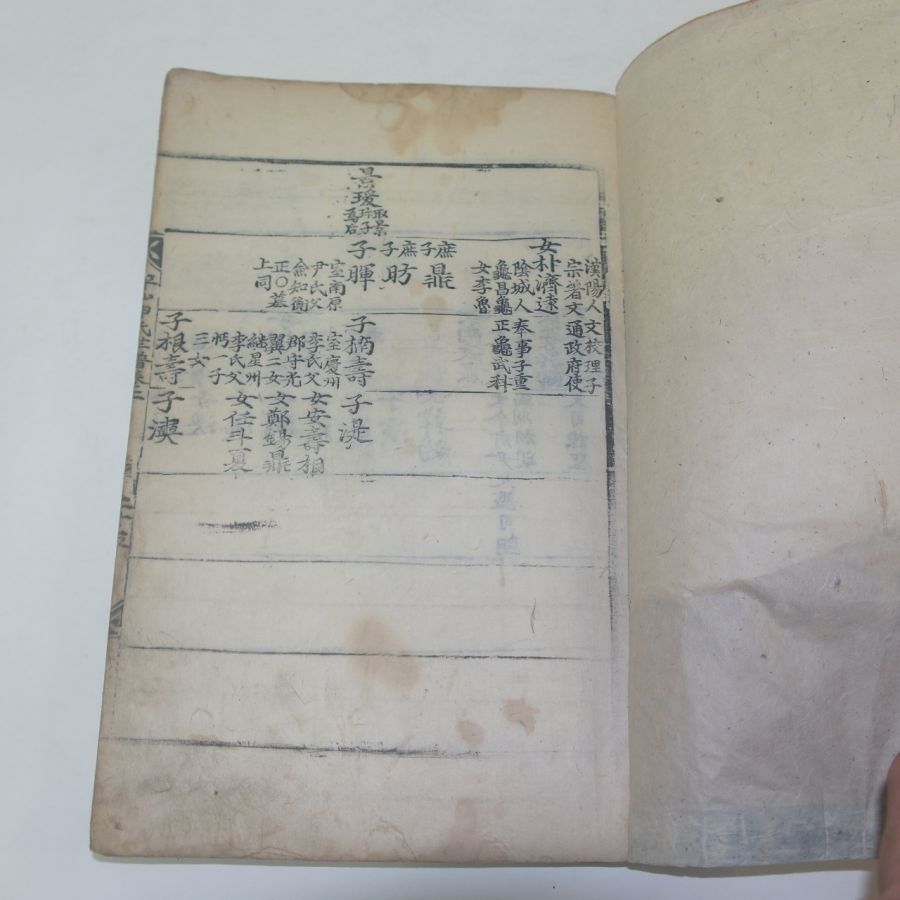 景瑗
子
女朴濟遠
陰城人奉事子重
龜昌龜正龜武科
女李魯
漢陽人文校理子
宗著文通政府使
庶子鼎
庶子昉
子暉
室南原
尹氏父
僉知
正〇墓
上同
子楠壽
室慶州
李氏父
郡守光
翼二女
継星州
李氏父
一子
三女
子湜
女安壽相
女鄭錫鼎
女任斗夏
子根壽
子渙
氏世譜卷